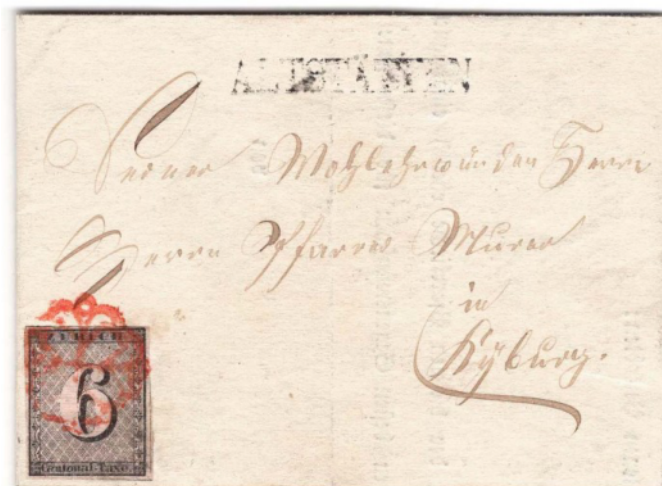 ALTSTÄTTEN
Seiner Wohlehrwürden Herrn
Herrn Pfarrer Murer
in
Kyburg.
ZÜRICH
6
Cantonal-Taxe.